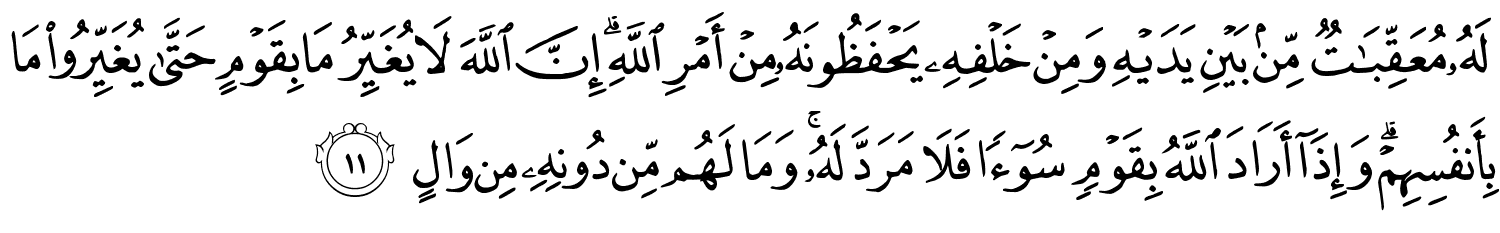 لَهُۥ مُعَقِّبَٰتٌ مِّنۢ بَيْنِ يَدَيْهِ وَمِنْ خَلْفِهِۦ يَحْفَظُونَهُۥ مِنْ أَمْرِ ٱللَّهِ ۗ إِنَّ ٱللَّهَ لَا يُغَيِّرُ مَا بِقَوْمٍ حَتَّىٰ يُغَيِّرُوا۟ مَا
بِأَنفُسِهِمْ ۗ وَإِذَآ أَرَادَ ٱللَّهُ بِقَوْمٍ سُوٓءًا فَلَا مَرَدَّ لَهُۥ ۚ وَمَا لَهُم مِّن دُونِهِۦ مِن وَالٍ ١١